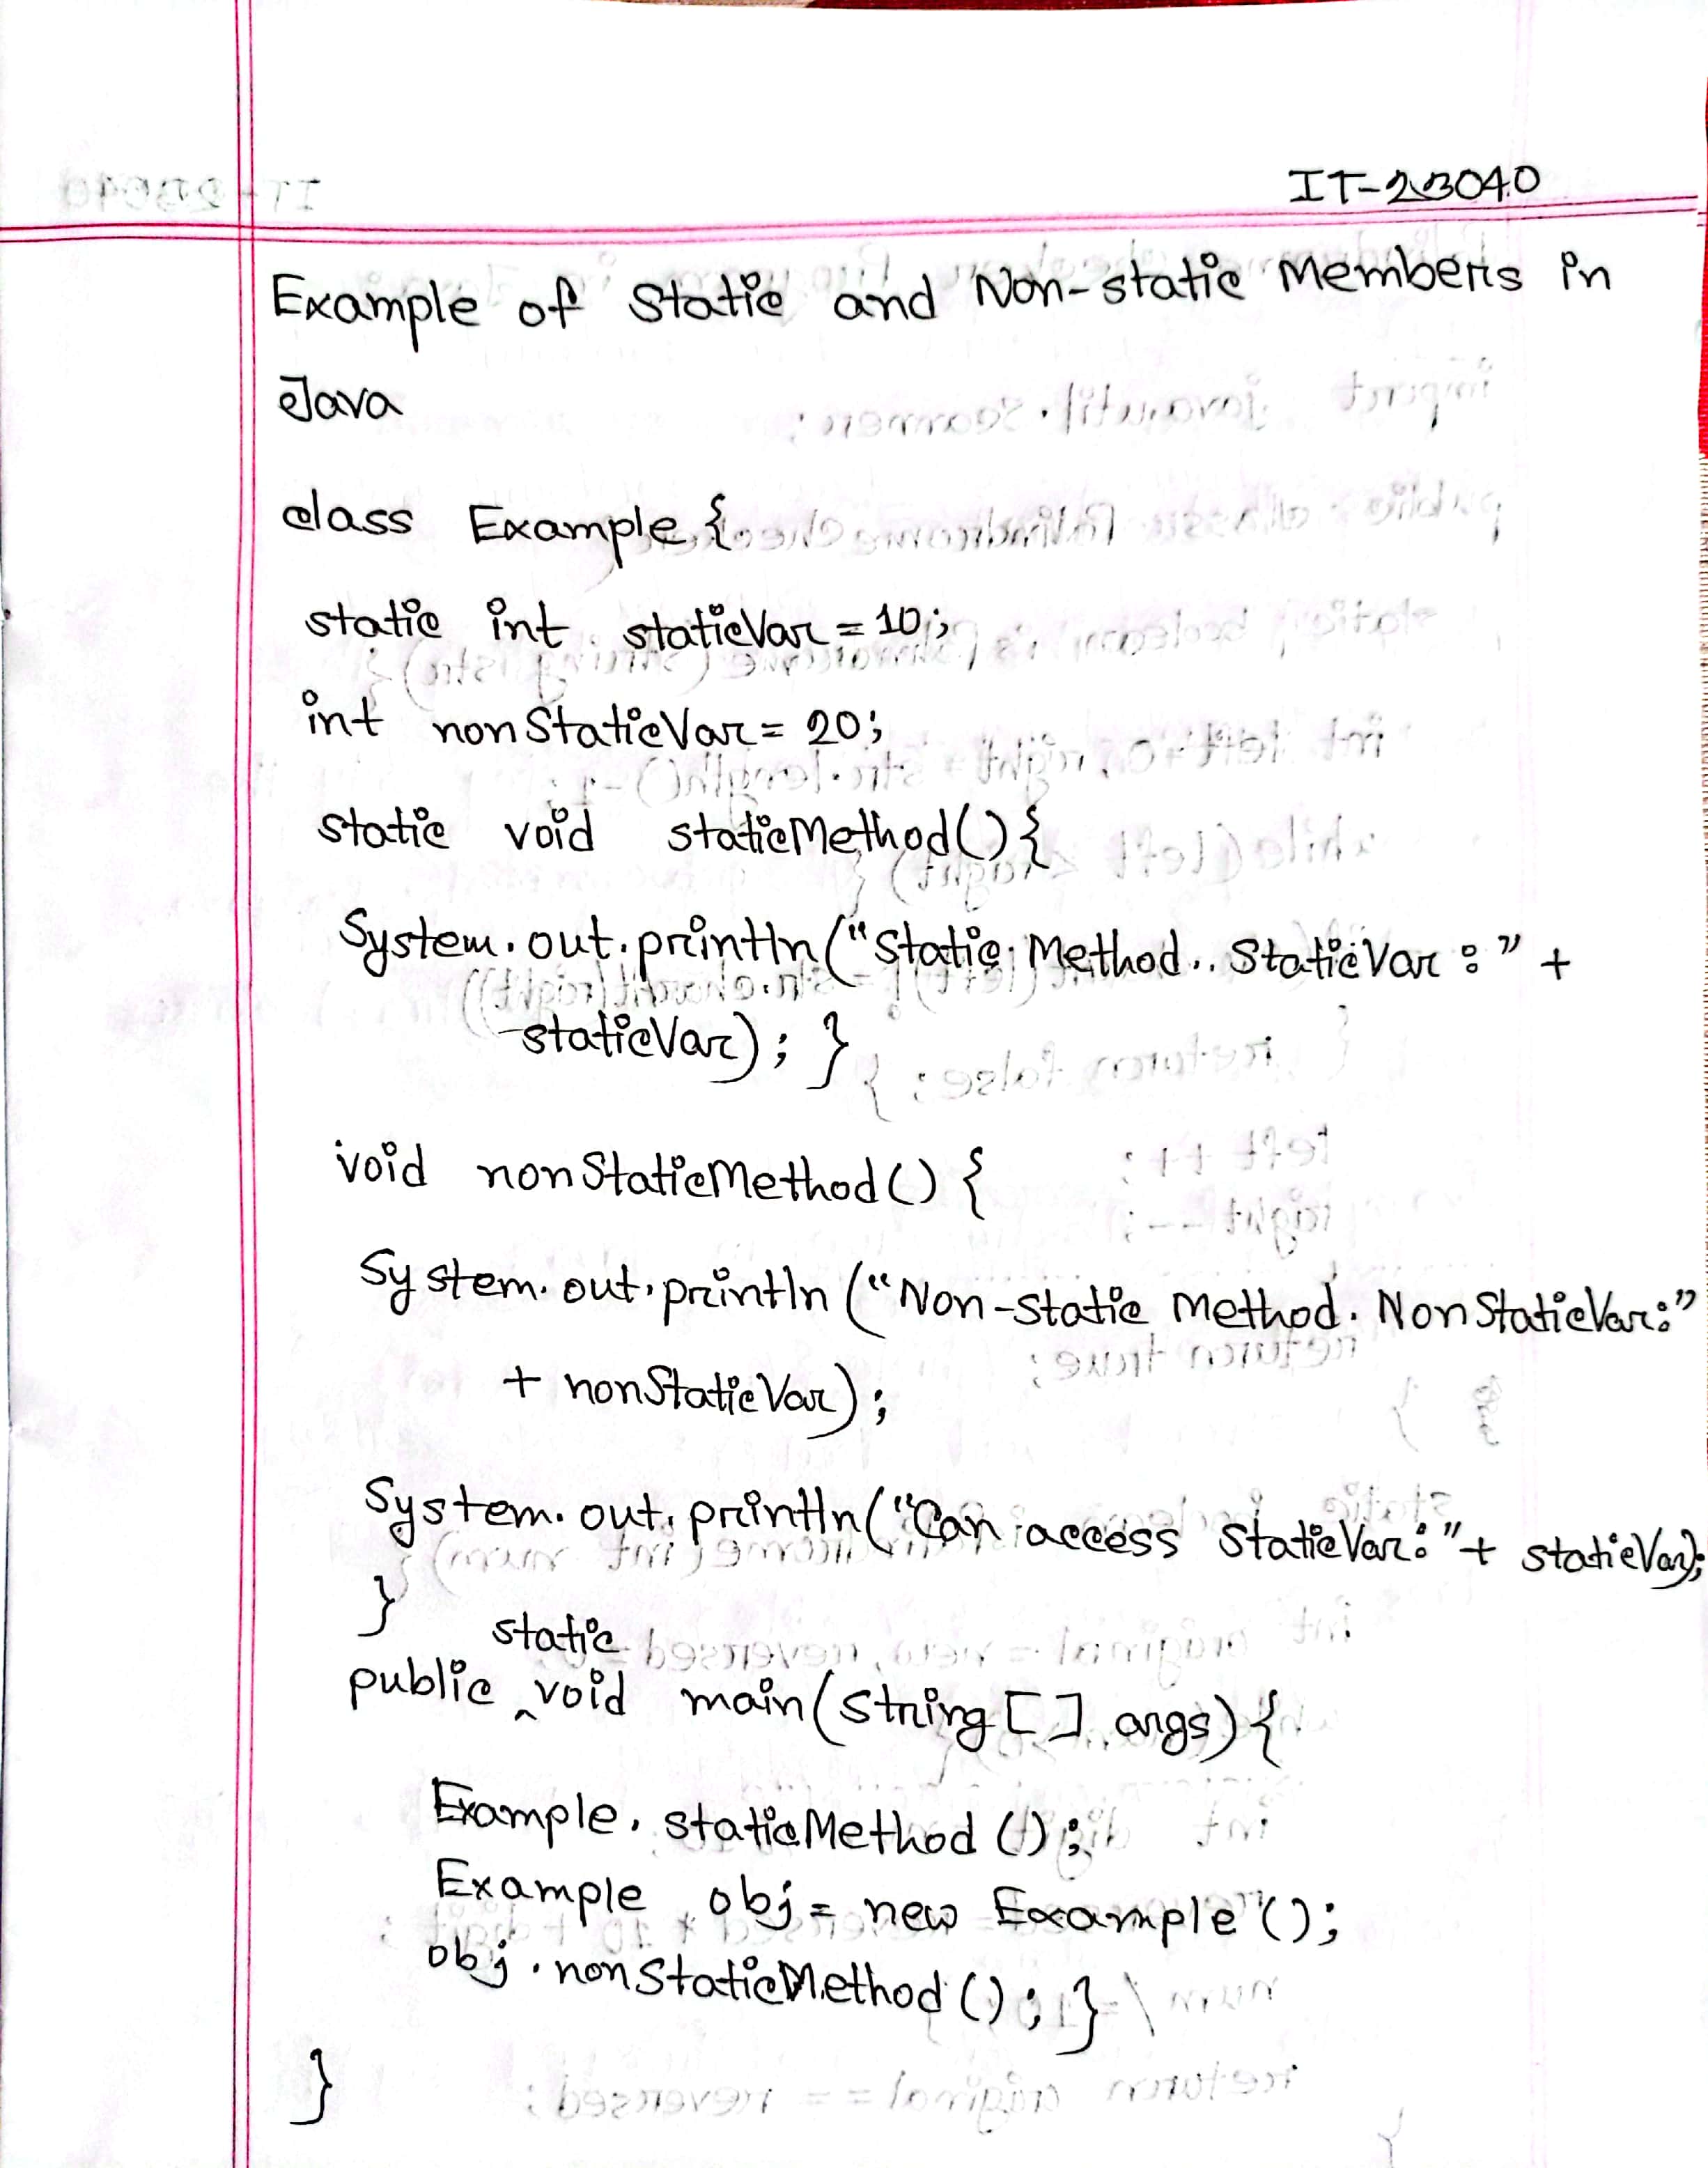 IT-23040
Example of Static and Non-static Members in
Java
class Example {
static int staticVar = 10;
int nonStaticVar = 20;
static void staticMethod() {
System.out.println("Static Method.. StaticVar : " +
staticVar); }
void nonStaticMethod() {
System.out.println("Non-static Method. NonStaticVar:"
+ nonStaticVar);
System.out.println("Can access StaticVar: " + staticVar);
}
public static void main(String [] args) {
Example.staticMethod();
Example obj = new Example();
obj.nonStaticMethod(); }
}